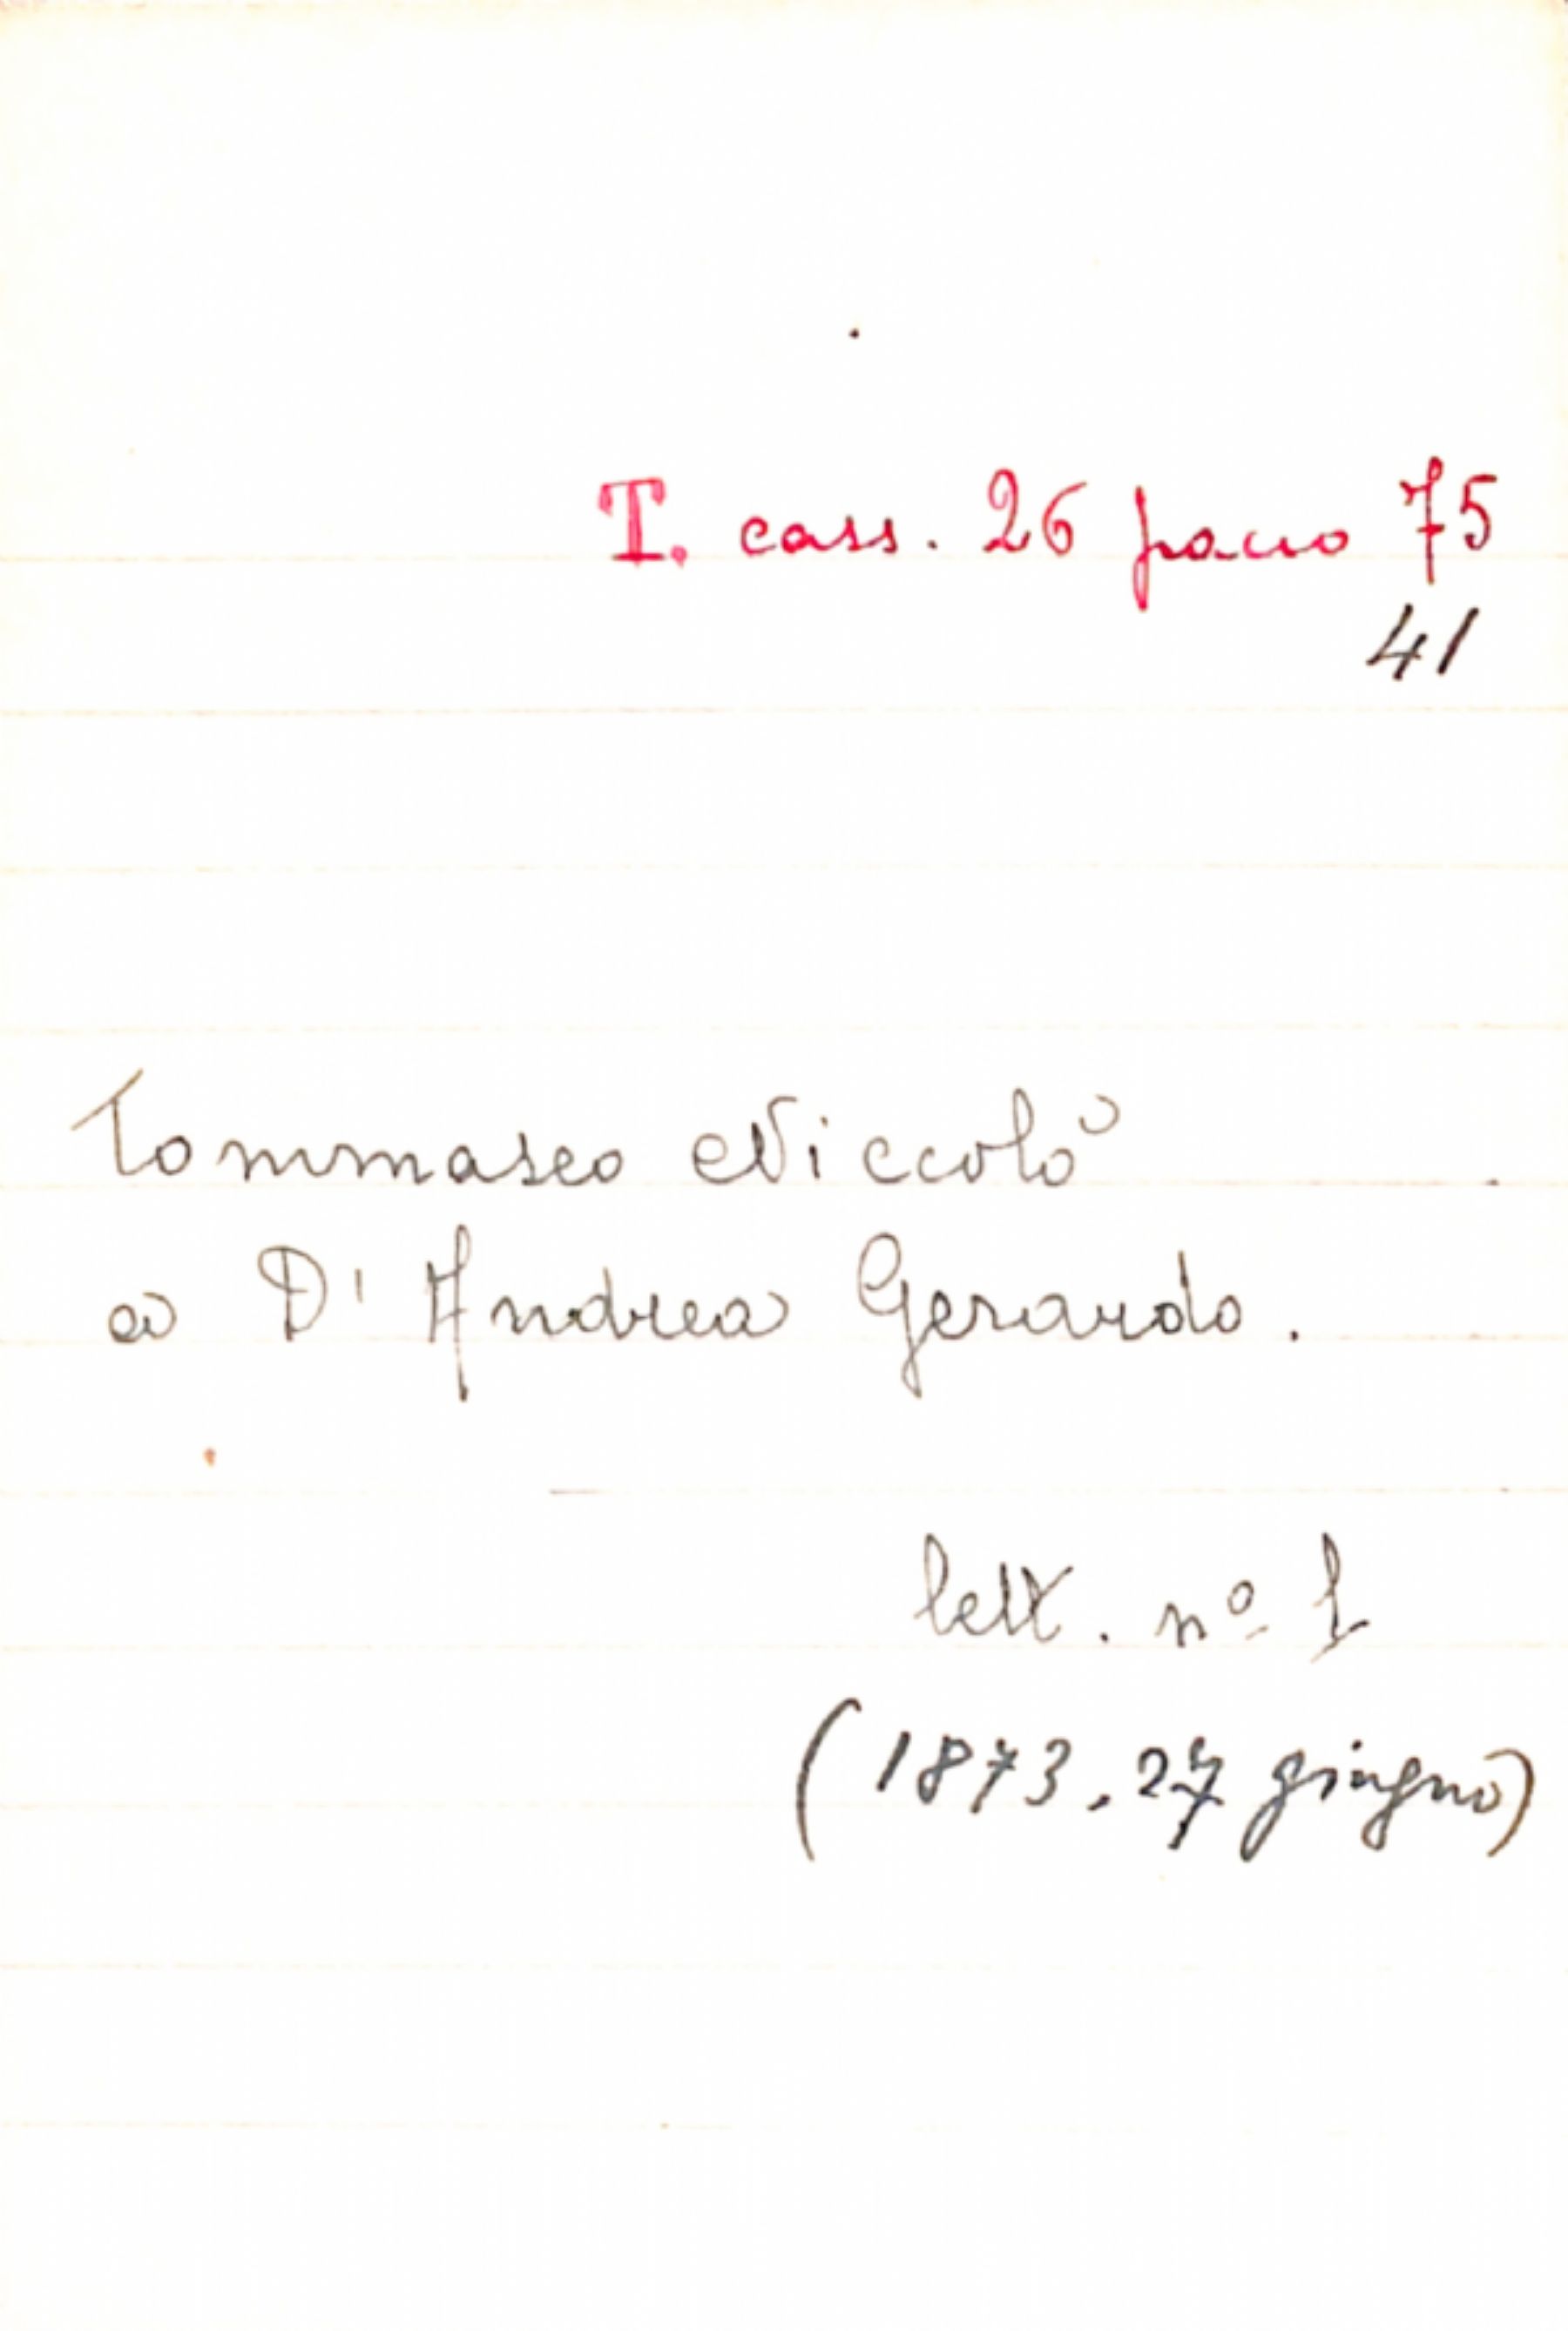 T. cass. 26 pacco 75
41
Tommaseo Niccolò
a D' Andrea Gerardo.
lett. nº 1
(1873, 27 giugno)